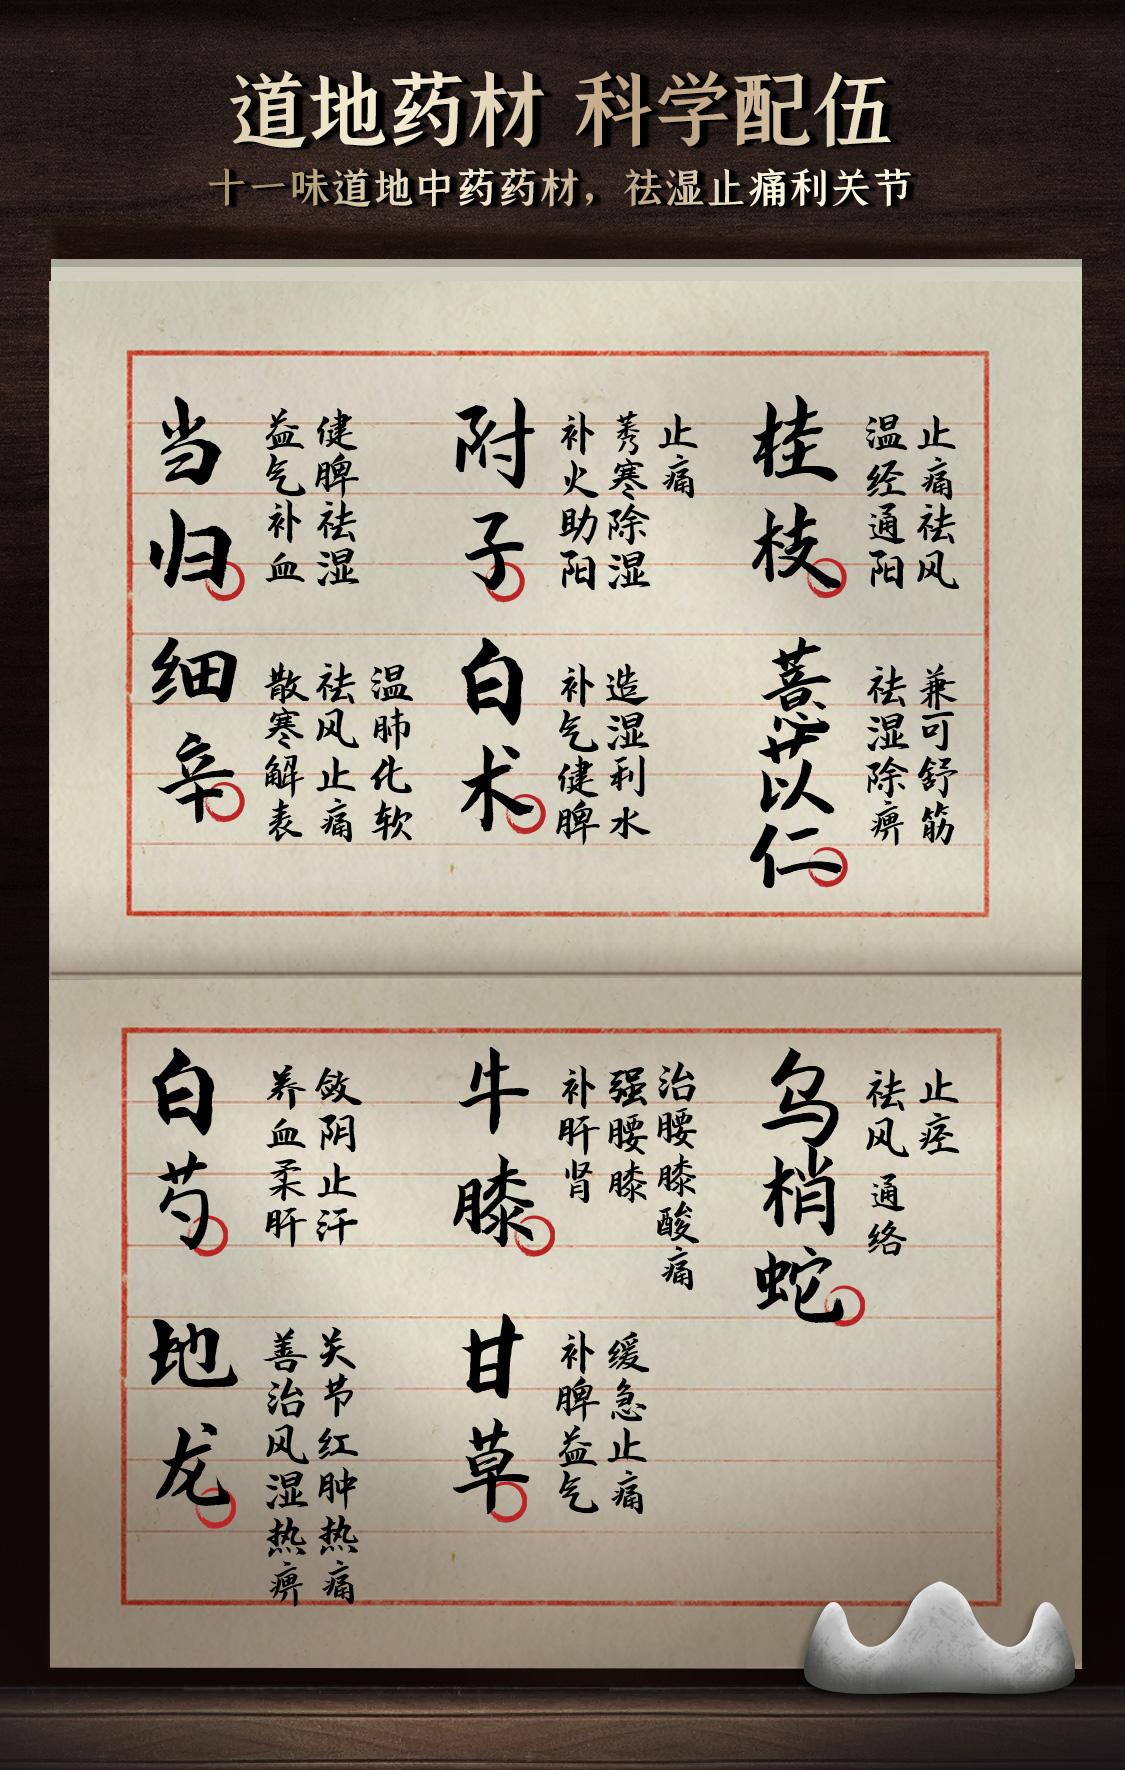 道地药材 科学配伍
十一味道地中药药材，祛湿止痛利关节
当归
益气补血
健脾祛湿
附子
补火助阳
莠寒除湿
止痛
桂枝
温经通阳
止痛祛风
细辛
散寒解表
祛风止痛
温肺化软
白术
补气健脾
造湿利水
薏苡仁
祛湿除痹
兼可舒筋
白芍
养血柔肝
敛阴止汗
牛膝
补肝肾
强腰膝
治腰膝酸痛
乌梢蛇
祛风通络
止痉
地龙
善治风湿热痹
关节红肿热痛
甘草
补脾益气
缓急止痛